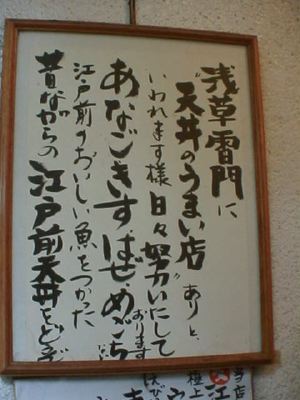 浅草雷門に
"天丼のうまい店"ありと、
いわれます様日々努力いたして
おります
あなごきす、はぜ、めごち
など
江戸前のおいしい魚をつかった
昔ながらの江戸前天丼をどうぞ
当店
極上